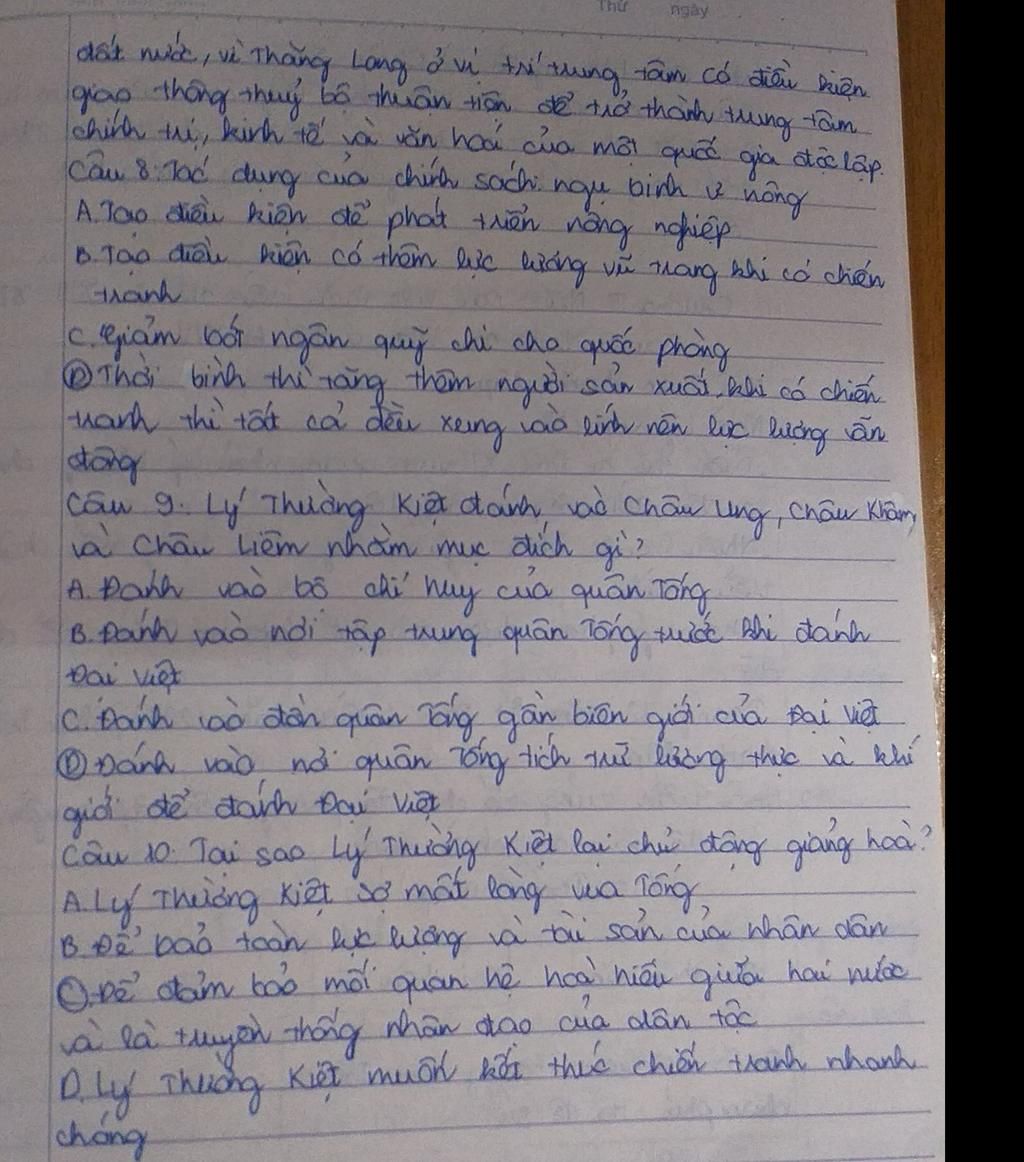 Thứ ngày
đất nước, vì Thăng Long ở vị trí trung tâm có điều kiện
giao thông thuỷ bộ thuận tiện để trở thành trung tâm
chính trị, kinh tế và văn hoá của một quốc gia độc lập.
Câu 8: Tác dụng của chính sách: ngụ binh ư nông
A. Tạo điều kiện để phát triển nông nghiệp
B. Tạo điều kiện có thêm lực lượng vũ trang khi có chiến
tranh
C. Giảm bớt ngân quỹ chi cho quốc phòng
D Thời bình thì tăng thêm người sản xuất, khi có chiến
tranh thì tất cả đều xung vào lính nên lực lượng vẫn
đông
Câu 9. Lý Thường Kiệt đánh vào Châu Ung, Châu Khâm,
và Châu Liêm nhằm mục đích gì?
A. Đánh vào bộ chỉ huy của quân Tống
B. Đánh vào nơi tập trung quân Tống trước khi đánh
Đại Việt
C. Đánh vào đồn quân Tống gần biên giới của Đại Việt
D Đánh vào nơi quân Tống tích trữ lương thực và khí
giới để đánh Đại Việt
Câu 10. Tại sao Lý Thường Kiệt lại chủ động giảng hoà?
A. Lý Thường Kiệt sợ mất lòng vua Tống
B. Để bảo toàn lực lượng và tài sản của nhân dân
C. Để đảm bảo mối quan hệ hoà hiếu giữa hai nước
và là truyền thống nhân đạo của dân tộc
D. Lý Thường Kiệt muốn kết thúc chiến tranh nhanh
chóng